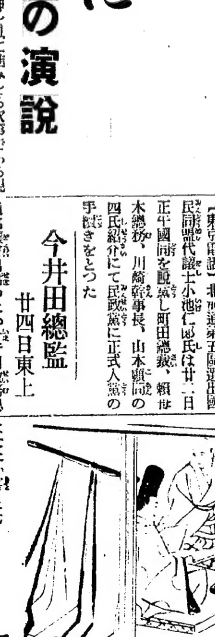 に
の演説
【東京電話】北海道第五區選出國
民同盟代議士小池仁郎氏は廿二日
正午國同を脱黨し町田總裁、頼母
木總務、川崎幹事長、山本顧問の
四氏紹介にて民政黨に正式入黨の
手續きをとつた
今井田總監
廿四日東上